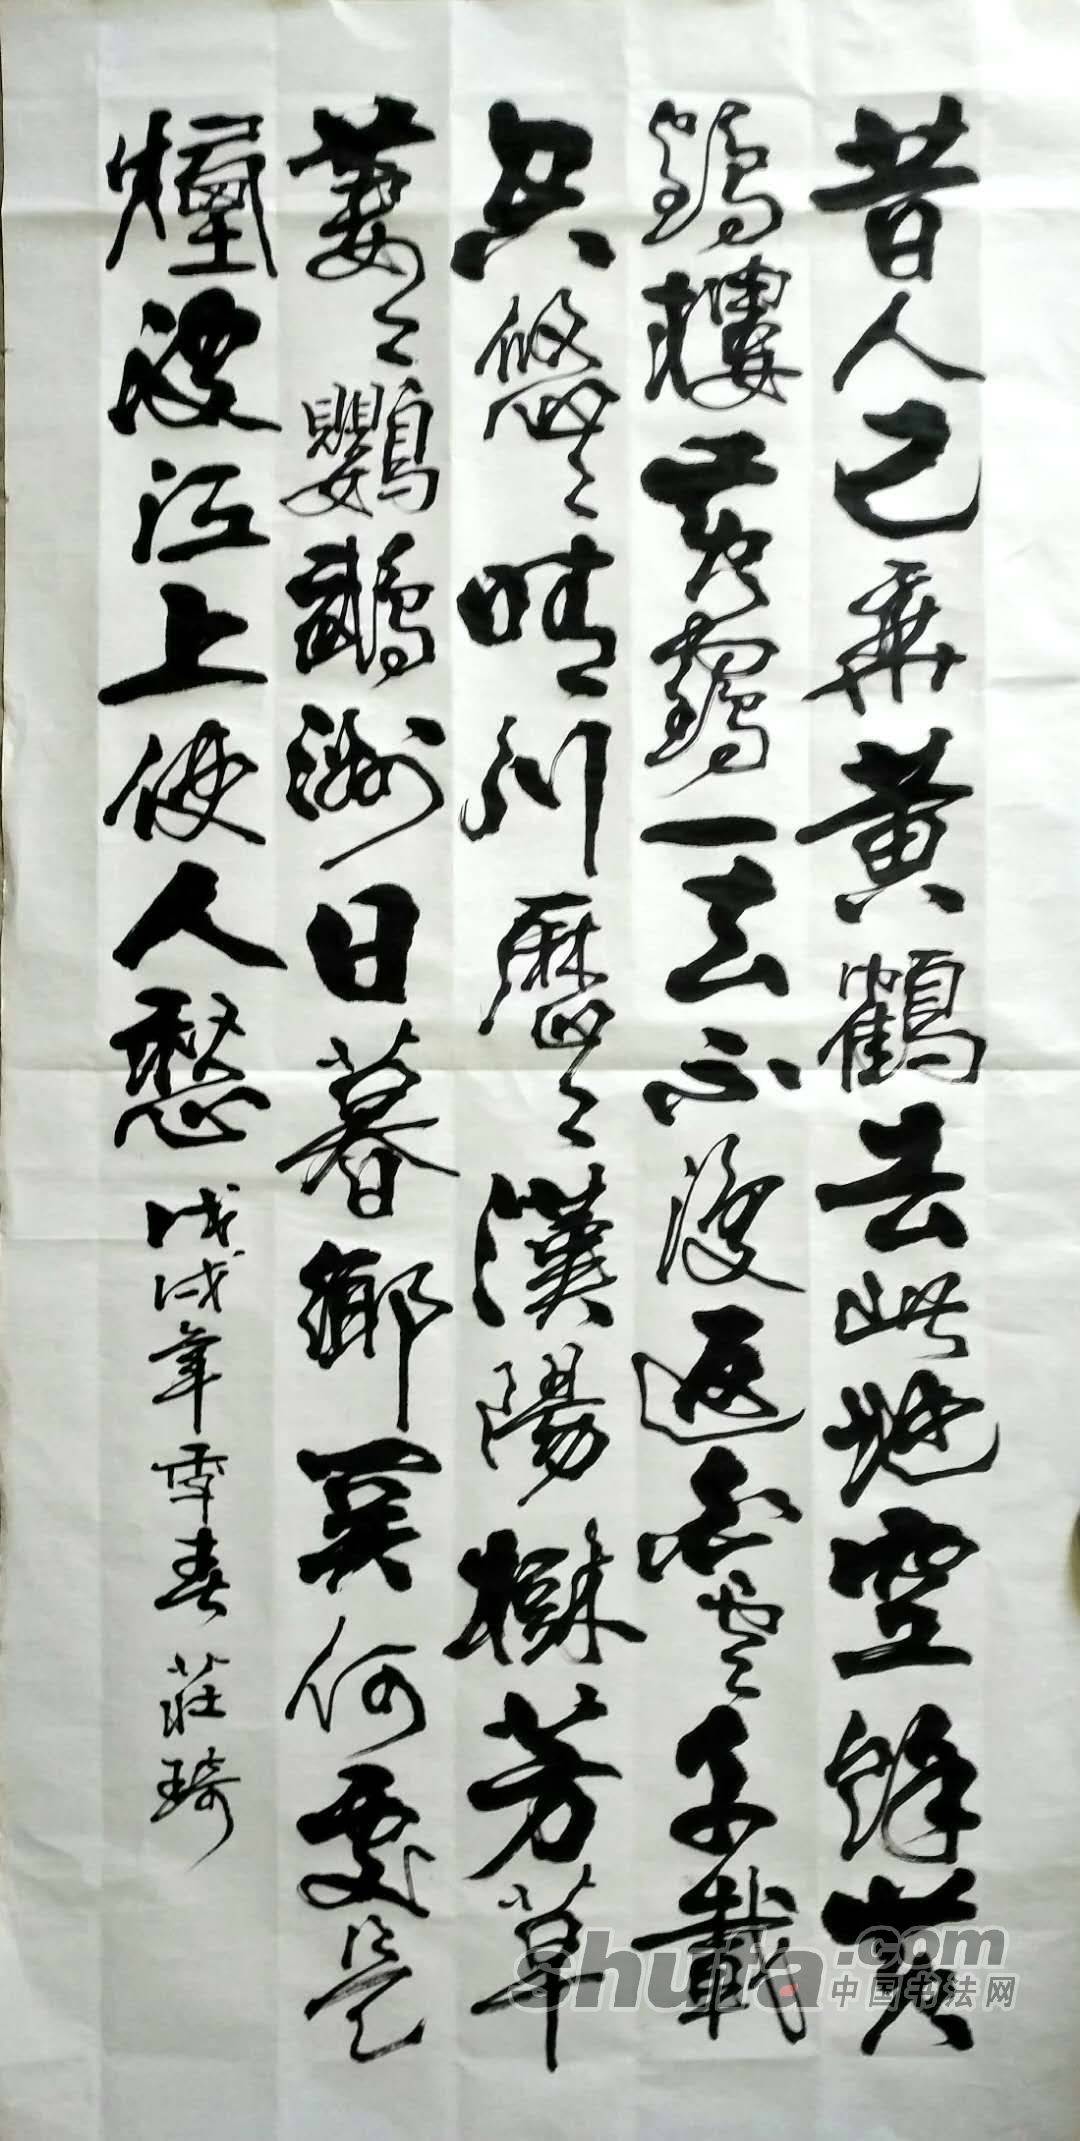 昔人已乗黄鶴去此地空餘黄
鶴樓黄鶴一去不復返白雲千載
空悠々晴川歷々漢陽樹芳草
萋々鸚鵡洲日暮鄉關何處是
煙波江上使人愁
戊戌年季春 莊琦
shufa.com
中国书法网